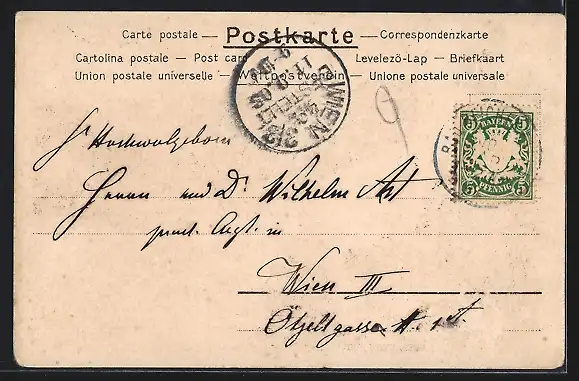 Carte postale — Postkarte — Correspondenzkarte
Cartolina postale — Post card Levelező-Lap — Briefkaart
Union postale universelle — Weltpostverein — Unione postale universale
WIEN 3/3
BESTELLT
BAYERN
5 5
PFENNIG
5 5
Hochwolgeboren
Herrn und Dr. Wilhelm Ast
pract. Arzt in
Wien III